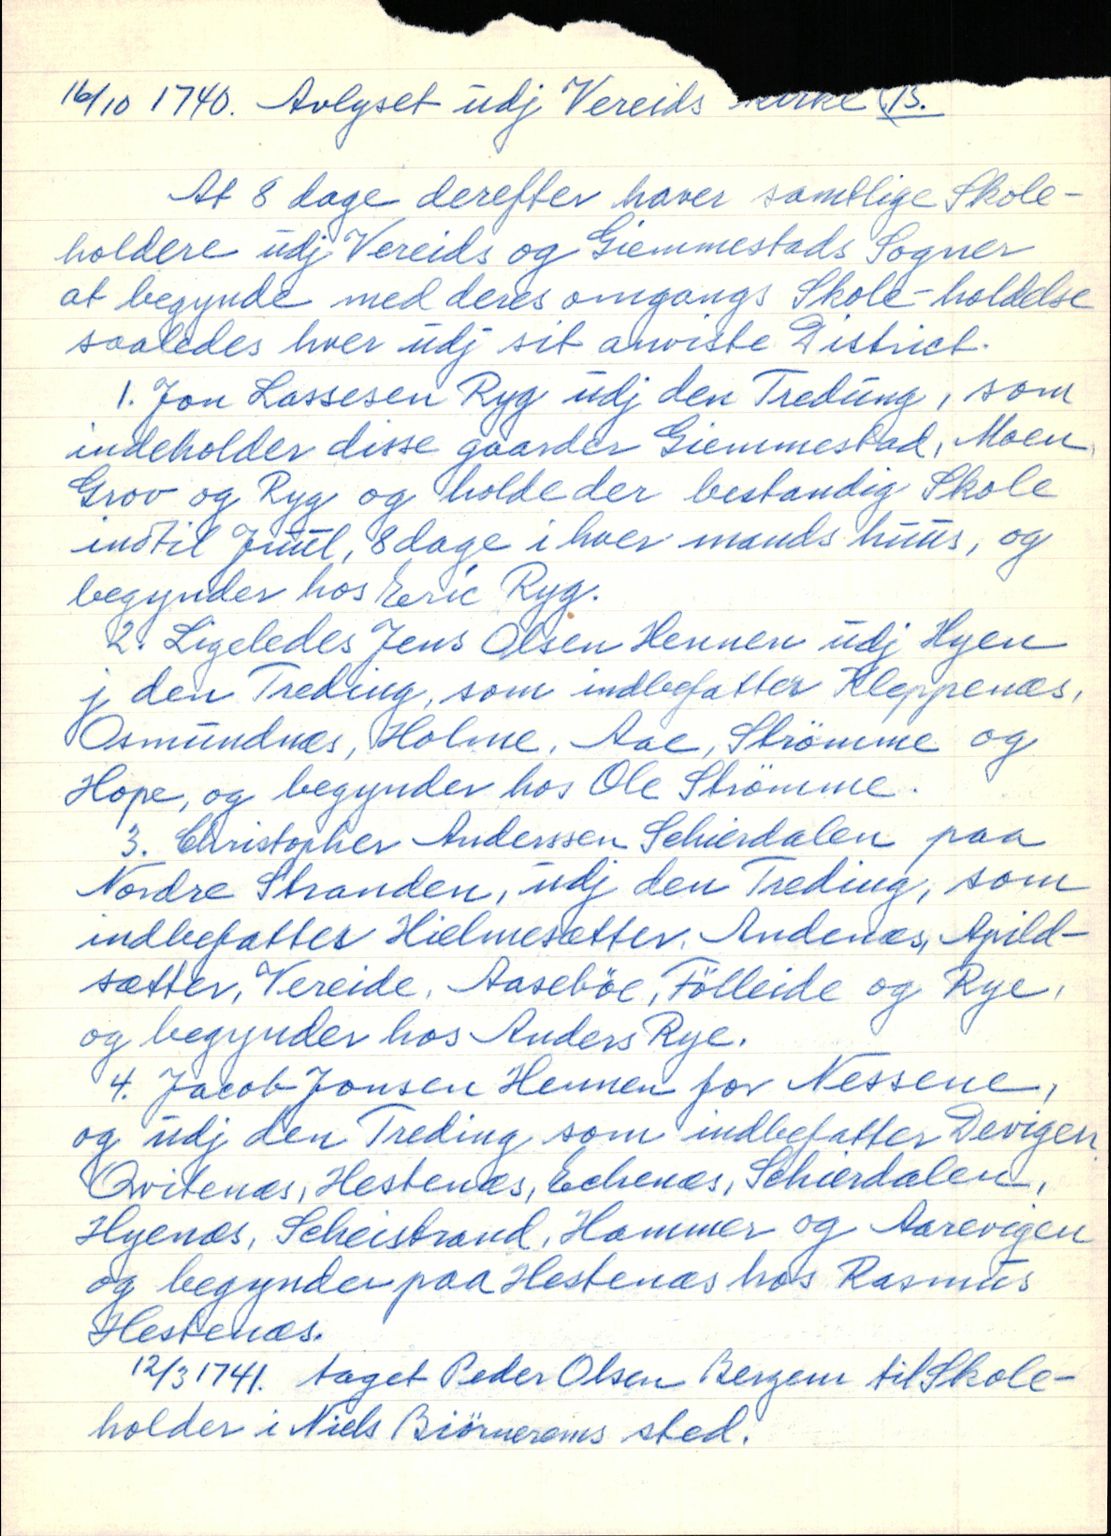 16/10 1740. Avlyset udj Vereids kirke (13.
At 8 dage derefter haver samtlige Skole-
holdere udj Vereids og Giemmestads Sogner
at begynde med deres omgangs Skole-holdelse
saaledes hver udj sit anviste District.
1. Jon Lassesen Ryg udj den Tredung, som
indeholder disse gaarder Giemmestad, Moen,
Grov og Ryg og holde der bestandig Skole
indtil Juul, 8 dage i hver mands huus, og
begynder hos Eric Ryg.
2. Ligeledes Jens Olsen Hennen udj Hyen
j den Treding, som indbefatter Kleppenæs,
Osmundnæs, Holme, Aae, Strömme og
Hope, og begynder hos Ole Strömme.
3. Christopher Anderssen Schierdalen paa
Nordre Stranden, udj den Treding, som
indbefatter Hielmesætter, Andenæs, Apild-
sætter, Vereide, Aaseböe, Fölleide og Rye,
og begynder hos Anders Rye.
4. Jacob Jonsen Hennen for Nessene,
og udj den Treding som indbefatter Devigen,
Qvitenæs, Hestenæs, Echenæs, Schierdalen,
Hyenæs, Scheistrand, Hammer og Aarevigen
og begynder paa Hestenæs hos Rasmus
Hestenæs.
12/3 1741. taget Peder Olsen Bergem til Skole-
holder i Niels Biörnerems sted.